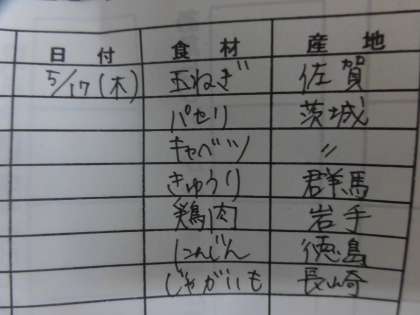 日付 食材 産地
5/17(木) 玉ねぎ 佐賀
パセリ 茨城
キャベツ 〃
きゅうり 群馬
鶏肉 岩手
にんじん 徳島
じゃがいも 長崎